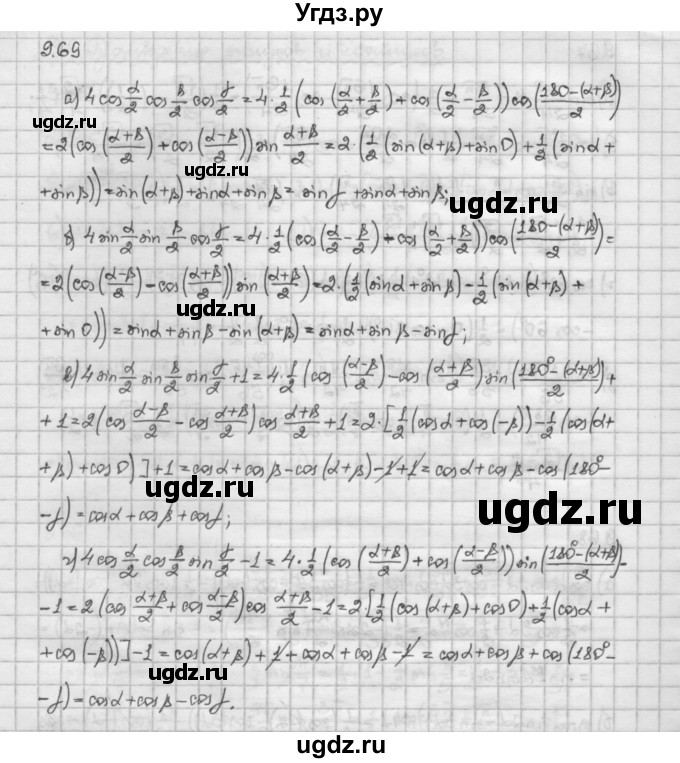 Угдз.ру
9.69
а) 4 cos α/2 cos β/2 cos γ/2 = 4·1/2 (cos(α/2 + β/2) + cos(α/2 − β/2)) cos((180 − (α+β))/2)
= 2(cos((α+β)/2) + cos((α−β)/2)) sin (α+β)/2 = 2·(1/2 (sin(α+β) + sin 0) + 1/2 (sin α +
+ sin β)) = sin(α+β) + sin α + sin β = sin γ + sin α + sin β;
б) 4 sin α/2 sin β/2 cos γ/2 = 4·1/2 (cos(α/2 − β/2) − cos(α/2 + β/2)) cos((180 − (α+β))/2) =
= 2(cos((α−β)/2) − cos((α+β)/2)) sin((α+β)/2) = 2·(1/2 (sin α + sin β) − 1/2 (sin(α+β) +
+ sin 0)) = sin α + sin β − sin(α+β) = sin α + sin β − sin γ;
в) 4 sin α/2 sin β/2 sin γ/2 + 1 = 4·1/2 (cos ((α−β)/2) − cos((α+β)/2) sin((180° − (α+β))/2) +
+ 1 = 2(cos (α−β)/2 − cos (α+β)/2) cos (α+β)/2 + 1 = 2·[1/2 (cos α + cos(−β)) − 1/2 (cos(α +
+ β) + cos 0)] + 1 = cos α + cos β − cos(α+β) − 1 + 1 = cos α + cos β − cos(180° −
− γ) = cos α + cos β + cos γ;
г) 4 cos α/2 cos β/2 sin γ/2 − 1 = 4·1/2 (cos((α+β)/2) + cos((α−β)/2)) sin((180° − (α+β))/2) −
− 1 = 2(cos (α+β)/2 + cos (α−β)/2) cos (α+β)/2 − 1 = 2·[1/2 (cos(α+β) + cos 0) + 1/2 (cos α +
+ cos(−β))] − 1 = cos(α+β) + 1 + cos α + cos β − 1 = cos α + cos β + cos(180° −
− γ) = cos α + cos β − cos γ.
ugdz.ru
ugdz.ru
ugdz.ru
ugdz.ru
ugdz.ru
ugdz.ru
ugdz.ru
ugdz.ru